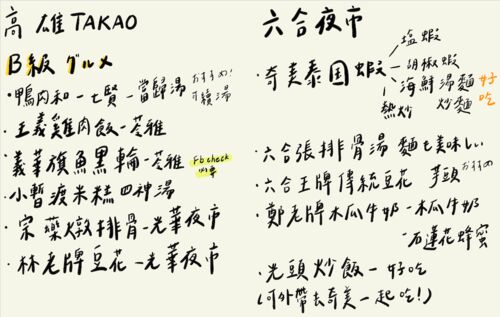 高雄TAKAO
B級グルメ
・鴨肉和-七賢-當歸湯 おすすめ! 可續湯
・王義雞肉飯-苓雅
・義華旗魚黑輪-苓雅 Fb check
小暫渡米糕四神湯
・宗藥燉排骨-光華夜市
・林老牌豆花-光華夜市
六合夜市
・奇美泰国蝦
塩蝦
胡椒蝦
海鮮湯麵 好吃
熱炒 炒麵
・六合張排骨湯 麵も美味しい
・六合王牌傳統豆花 芋頭 おすすめ
・鄭老牌木瓜牛奶-木瓜牛奶
-石蓮花蜂蜜
・光頭炒飯-好吃
(可外帶去奇美一起吃!)